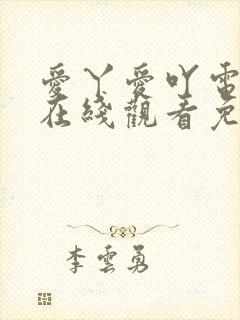 愛丫愛吖電
在綫觀看免
李雲勇